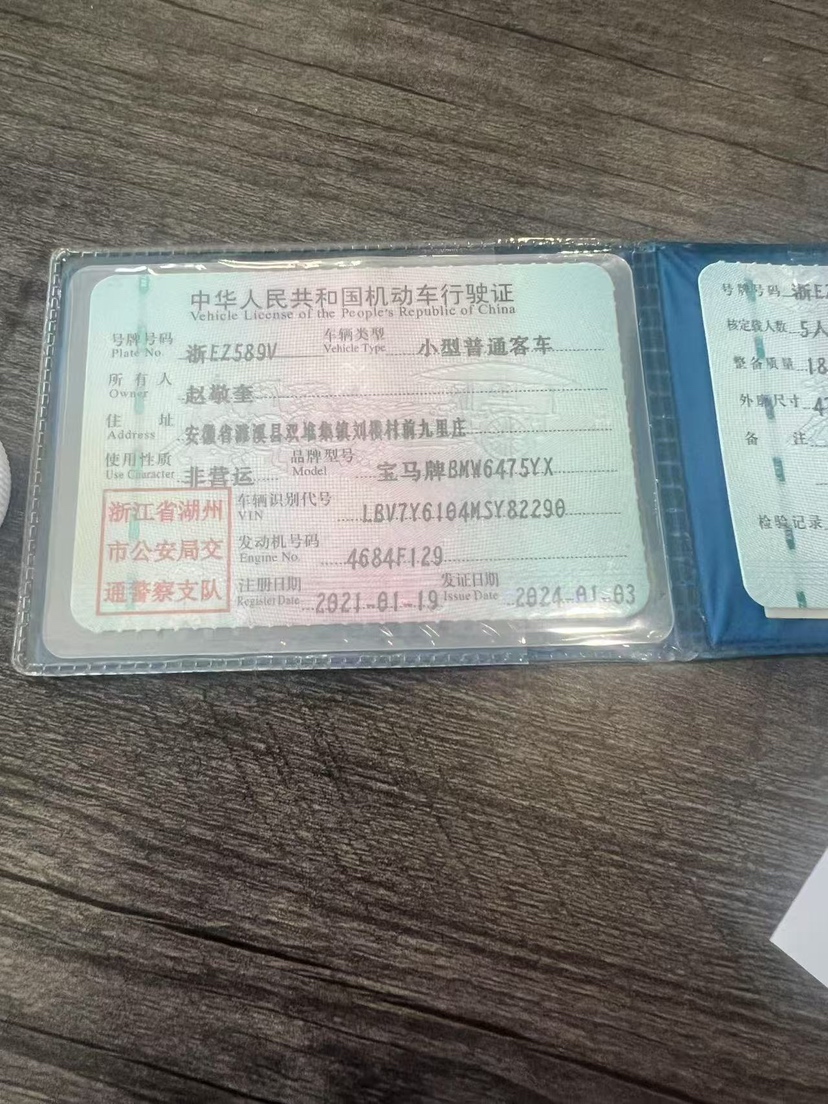 中华人民共和国机动车行驶证
Vehicle License of the People's Republic of China
号牌号码 浙EZ589V 车辆类型 小型普通客车
Plate No. Vehicle Type
所有人 赵敬奎
Owner
住址 安徽省濉溪县双堆集镇刘楼村前九里庄
Address
使用性质 非营运 品牌型号 宝马牌BMW6475YX
Use Character Model
浙江省湖州
市公安局交
通警察支队
车辆识别代号 LBV7Y6104MSY82290
VIN
发动机号码 4684F129
Engine No.
注册日期 2021-01-19 发证日期 2024-01-03
Register Date Issue Date
号牌号码 浙EZ
核定载人数 5人
整备质量 18
外廓尺寸 47
备注
检验记录